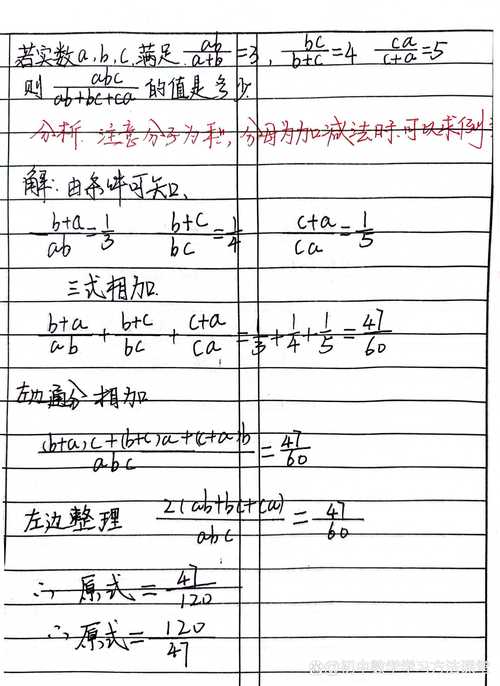 若实数a,b,c,满足 ab/a+b=3, bc/b+c=4 ca/c+a=5
则 abc/ab+bc+ca 的值是多少
分析. 注意分子为乘, 分母为加减法时.可以求倒
解:由条件可知,
b+a/ab=1/3 b+c/bc=1/4 c+a/ca=1/5
三式相加.
b+a/ab + b+c/bc + c+a/ca = 1/3+1/4+1/5=47/60
左边通分相加
(b+a)c+(b+c)a+(c+a)b/abc = 47/60
左边整理 2(ab+bc+ca)/abc = 47/60
∴原式=47/120
∴原式=120/47